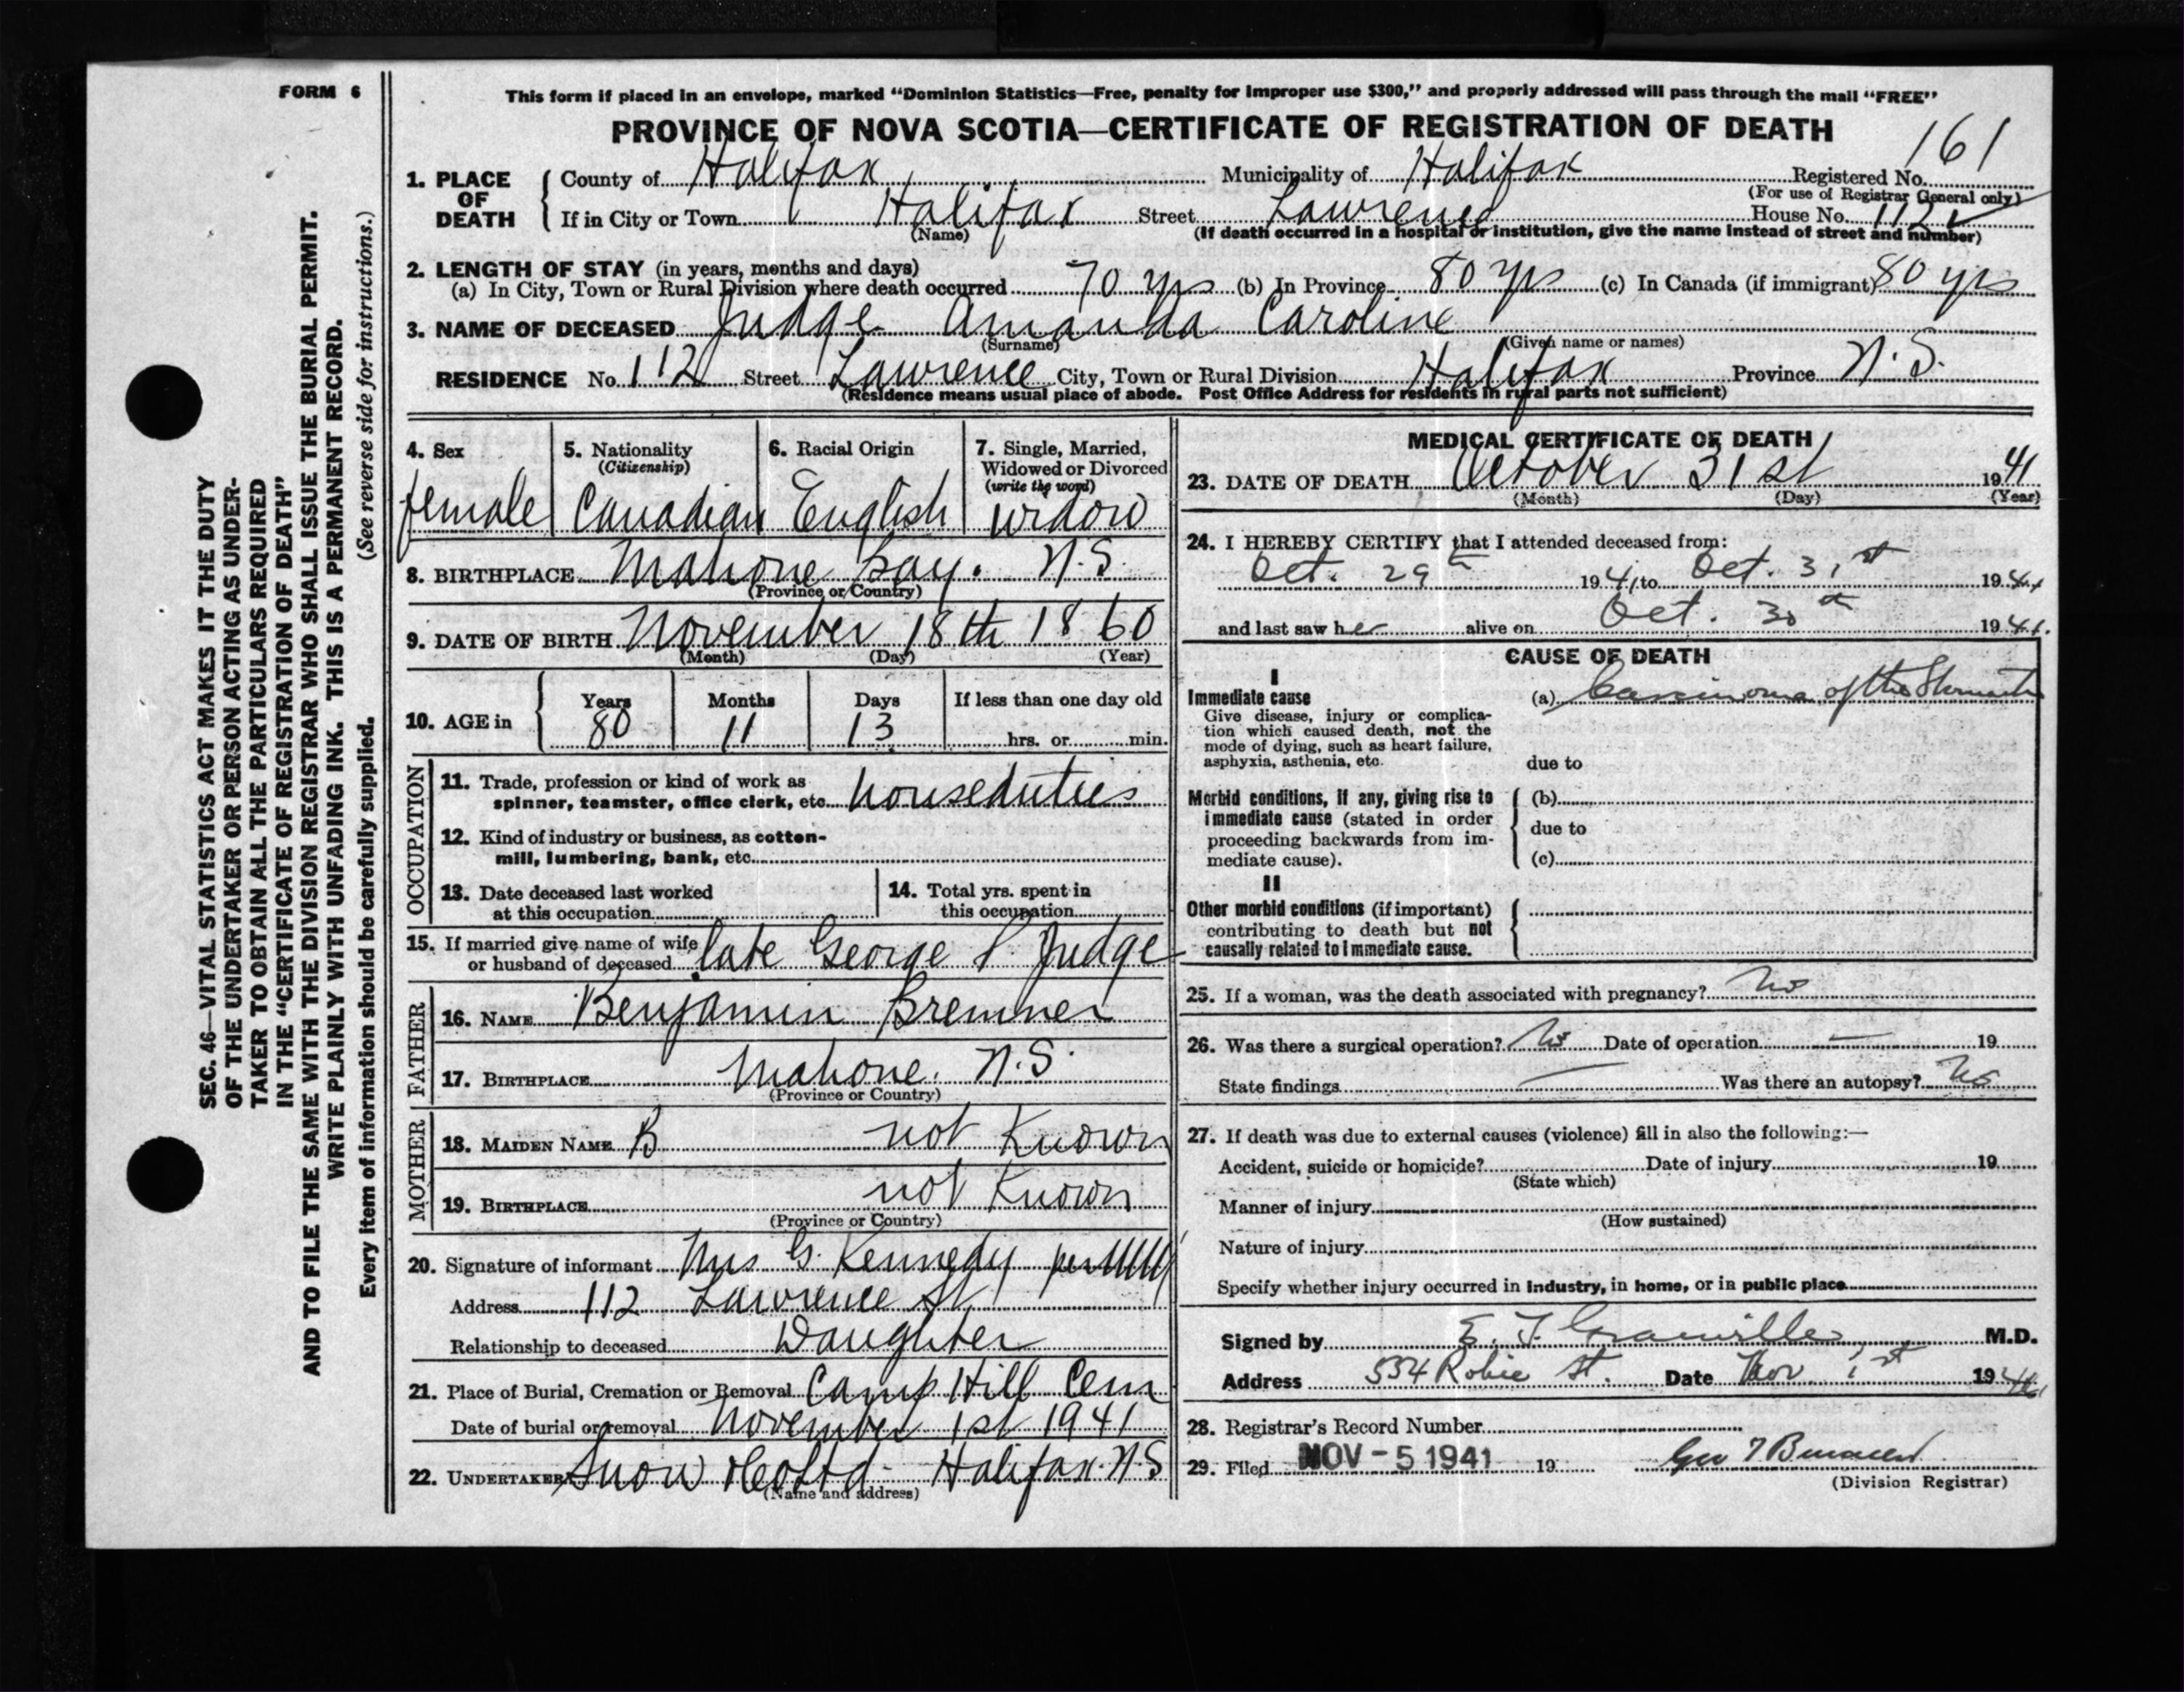 FORM 6
This form if placed in an envelope, marked “Dominion Statistics—Free, penalty for improper use $300,” and properly addressed will pass through the mail “FREE”
PROVINCE OF NOVA SCOTIA—CERTIFICATE OF REGISTRATION OF DEATH
161
1. PLACE OF DEATH County of Halifax Municipality of Halifax Registered No.
(For use of Registrar General only)
If in City or Town Halifax Street Lawrence House No. 112
(Name) (If death occurred in a hospital or institution, give the name instead of street and number)
2. LENGTH OF STAY (in years, months and days)
(a) In City, Town or Rural Division where death occurred 70 yrs (b) In Province 80 yrs (c) In Canada (if immigrant) 80 yrs
3. NAME OF DECEASED Judge Amanda Caroline
(Surname) (Given name or names)
RESIDENCE No. 112 Street Lawrence City, Town or Rural Division Halifax Province N.S.
(Residence means usual place of abode. Post Office Address for residents in rural parts not sufficient)
4. Sex
female
5. Nationality
(Citizenship)
Canadian
6. Racial Origin
English
7. Single, Married,
Widowed or Divorced
(write the word)
widow
8. BIRTHPLACE Mahone Bay. N.S.
(Province or Country)
9. DATE OF BIRTH November 18th 1860
(Month) (Day) (Year)
10. AGE in Years Months Days If less than one day old
80 11 13 hrs. or min.
OCCUPATION
11. Trade, profession or kind of work as
spinner, teamster, office clerk, etc. houseduties
12. Kind of industry or business, as cotton-
mill, lumbering, bank, etc.
13. Date deceased last worked
at this occupation
14. Total yrs. spent in
this occupation
15. If married give name of wife
or husband of deceased late George P. Judge
FATHER
16. NAME Benjamin Bremner
17. BIRTHPLACE Mahone. N.S.
(Province or Country)
MOTHER
18. MAIDEN NAME B not Known
19. BIRTHPLACE not Known
(Province or Country)
20. Signature of informant Mrs G. Kennedy per
Address 112 Lawrence St
Relationship to deceased Daughter
21. Place of Burial, Cremation or Removal Camp Hill Cem
Date of burial or removal November 1st 1941
22. UNDERTAKER Snow & Co Ltd - Halifax. N.S
(Name and address)
MEDICAL CERTIFICATE OF DEATH
23. DATE OF DEATH October 31st 1941
(Month) (Day) (Year)
24. I HEREBY CERTIFY that I attended deceased from:
Oct. 29th 1941, to Oct. 31st 1941
and last saw her alive on Oct. 30th 1941.
CAUSE OF DEATH
I
Immediate cause (a) Carcinoma of the Stomach
Give disease, injury or complica-
tion which caused death, not the
mode of dying, such as heart failure,
asphyxia, asthenia, etc. due to
Morbid conditions, if any, giving rise to (b)
immediate cause (stated in order
proceeding backwards from im- due to
mediate cause). (c)
II
Other morbid conditions (if important)
contributing to death but not
causally related to immediate cause.
25. If a woman, was the death associated with pregnancy? No
26. Was there a surgical operation? No Date of operation — 19
State findings — Was there an autopsy? No
27. If death was due to external causes (violence) fill in also the following:—
Accident, suicide or homicide? Date of injury 19
(State which)
Manner of injury
(How sustained)
Nature of injury
Specify whether injury occurred in industry, in home, or in public place
Signed by E. J. Granville M.D.
Address 534 Robie St. Date Nov 1st 1941
28. Registrar's Record Number
29. Filed NOV - 5 1941 19
(Division Registrar)
SEC. 46—VITAL STATISTICS ACT MAKES IT THE DUTY
OF THE UNDERTAKER OR PERSON ACTING AS UNDER-
TAKER TO OBTAIN ALL THE PARTICULARS REQUIRED
IN THE “CERTIFICATE OF REGISTRATION OF DEATH”
AND TO FILE THE SAME WITH THE DIVISION REGISTRAR WHO SHALL ISSUE THE BURIAL PERMIT.
WRITE PLAINLY WITH UNFADING INK. THIS IS A PERMANENT RECORD.
Every item of information should be carefully supplied. (See reverse side for instructions.)